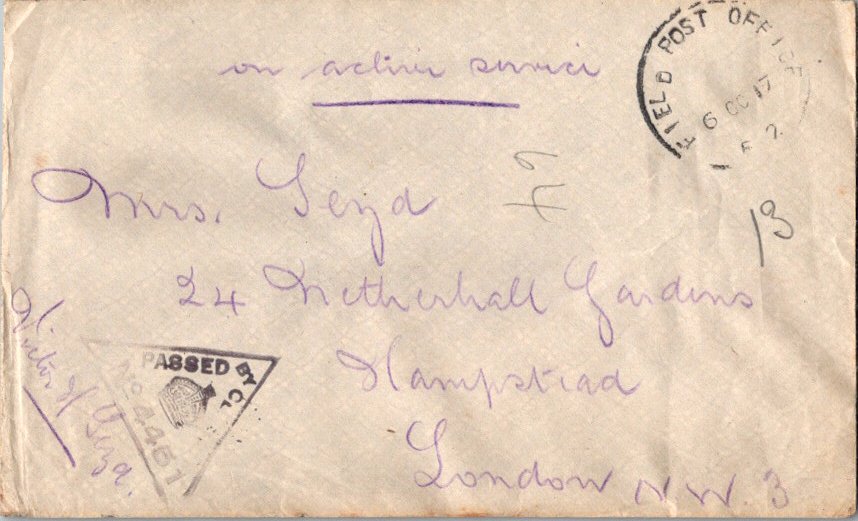 on active service
FIELD POST OFFICE
6 OC 17
Mrs. Seyd
13
24 Netherhall Gardens
Hampstead
London N.W. 3
PASSED BY
No 4451
Victor Seyd.